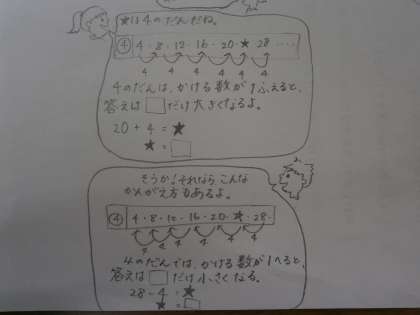 ★は4のだんだね。
④ 4・8・12・16・20・★ 28 ・・・・
4 4 4 4 4 4
4のだんは、かける数が1ふえると、
答えは□だけ大きくなるよ。
20 + 4 = ★
★ = □
そうか!それなら、こんな
かんがえ方もあるよ。
④ 4・8・12・16・20・★・28・
4 4 4 4 4 4
4のだんでは、かける数が1へると、
答えは□だけ小さくなる。
28 - 4 = ★
★ = □